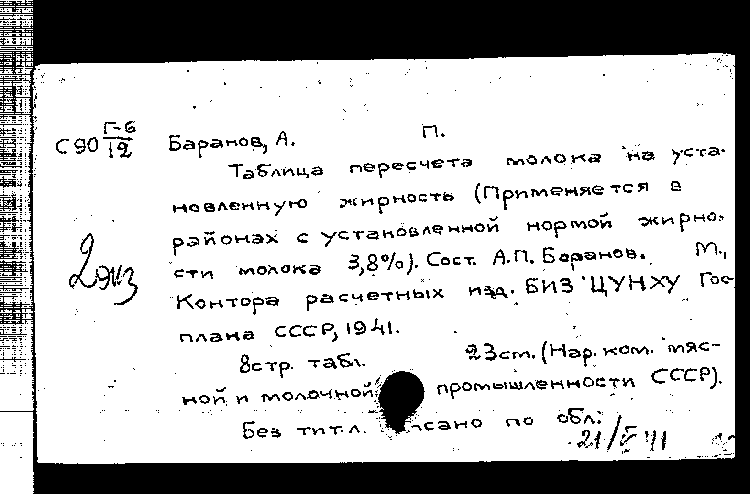 С 90 Г-6/12 Баранов, А. П.
Таблица пересчета молока на уста-
новленную жирность (Применяется в
районах с установленной нормой жирно-
сти молока 3,8%). Сост. А.П. Баранов. М.,
2 экз
Контора расчетных изд. БИЗ ЦУНХУ Гос-
плана СССР, 1941.
8 стр. табл. 23 cm. (Нар. ком. мяс-
ной и молочной промышленности СССР).
Без тит. л. по обл.
21/V 41